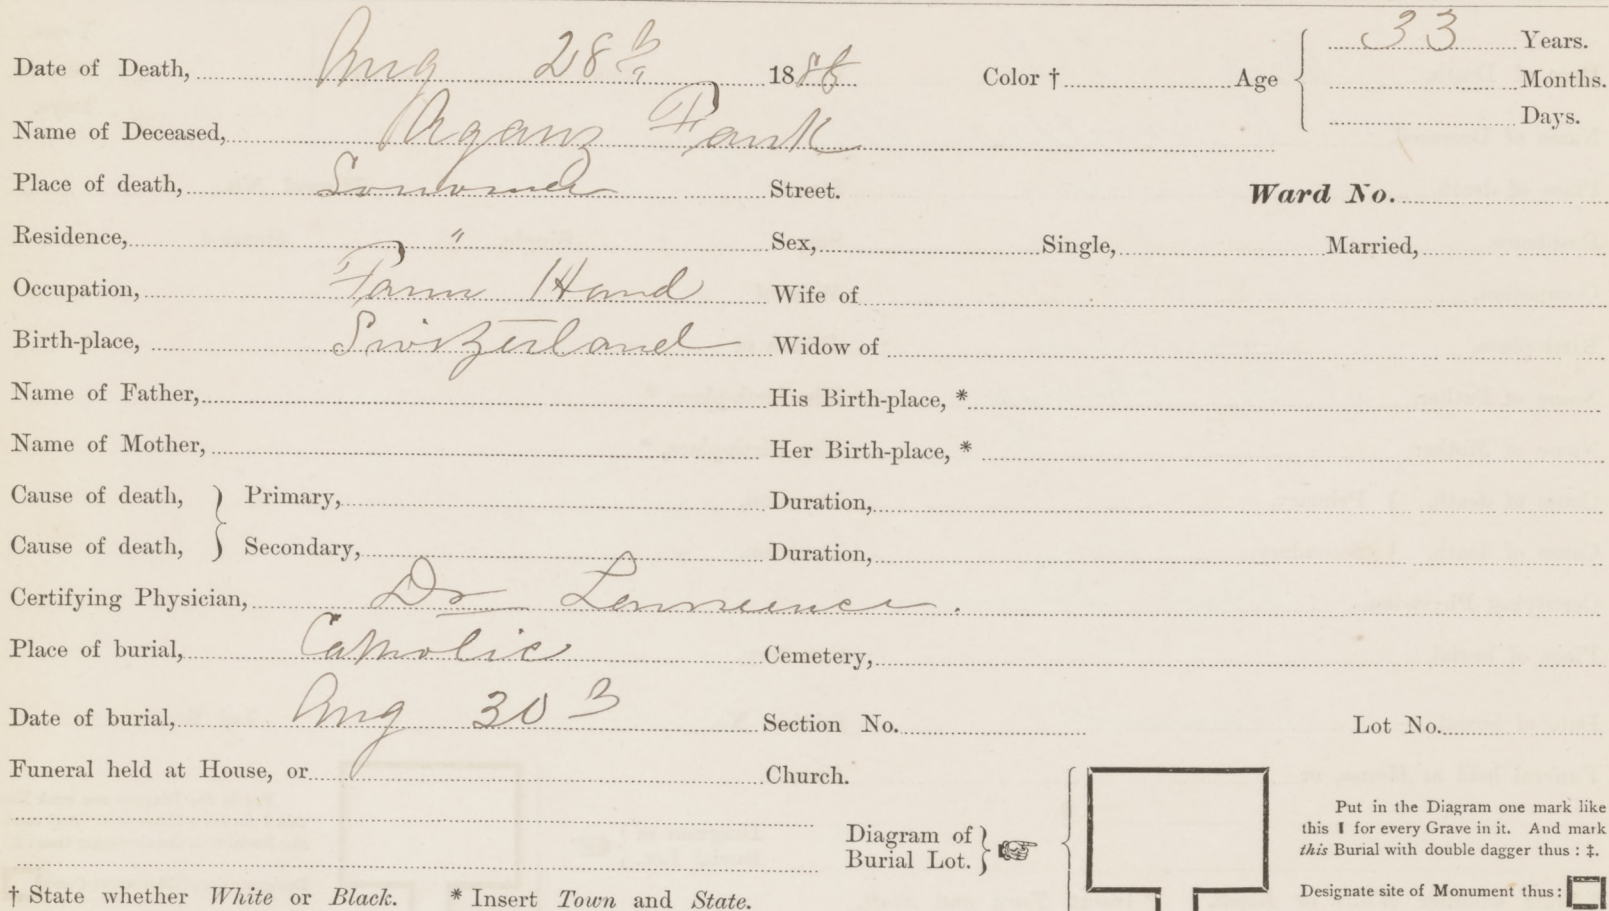 Date of Death, Aug 28th 1886 Color † Age 33 Years.
Months.
Days.
Name of Deceased, Frank
Place of death, Sonoma Street. Ward No.
Residence, " Sex, Single, Married,
Occupation, Farm Hand Wife of
Birth-place, Switzerland Widow of
Name of Father, His Birth-place, *
Name of Mother, Her Birth-place, *
Cause of death, } Primary, Duration,
Cause of death, } Secondary, Duration,
Certifying Physician, Dr
Place of burial, Catholic Cemetery,
Date of burial, Aug 30th Section No. Lot No.
Funeral held at House, or Church.
Diagram of Burial Lot. }
Put in the Diagram one mark like
this I for every Grave in it. And mark
this Burial with double dagger thus: ‡.
Designate site of Monument thus:
† State whether White or Black. * Insert Town and State.